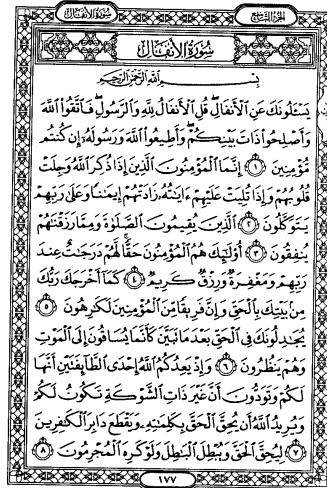 سورة الأنفال
الجزء التاسع
سورة الأنفال
بسم الله الرحمن الرحيم
يسـٔلونك عن الأنفال قل الأنفال لله والرسول فاتقوا الله
وأصلحوا ذات بينكم وأطيعوا الله ورسوله إن كنتم
مؤمنين ١ إنما المؤمنون الذين إذا ذكر الله وجلت
قلوبهم وإذا تليت عليهم ءايته زادتهم إيمنا وعلى ربهم
يتوكلون ٢ الذين يقيمون الصلوة ومما رزقنهم
ينفقون ٣ أولئك هم المؤمنون حقا لهم درجت عند
ربهم ومغفرة ورزق كريم ٤ كما أخرجك ربك
من بيتك بالحق وإن فريقا من المؤمنين لكرهون ٥
يجدلونك في الحق بعد ما تبين كأنما يساقون إلى الموت
وهم ينظرون ٦ وإذ يعدكم الله إحدى الطائفتين أنها
لكم وتودون أن غير ذات الشوكة تكون لكم
ويريد الله أن يحق الحق بكلمته ويقطع دابر الكفرين
٧ ليحق الحق ويبطل البطل ولو كره المجرمون ٨
١٧٧